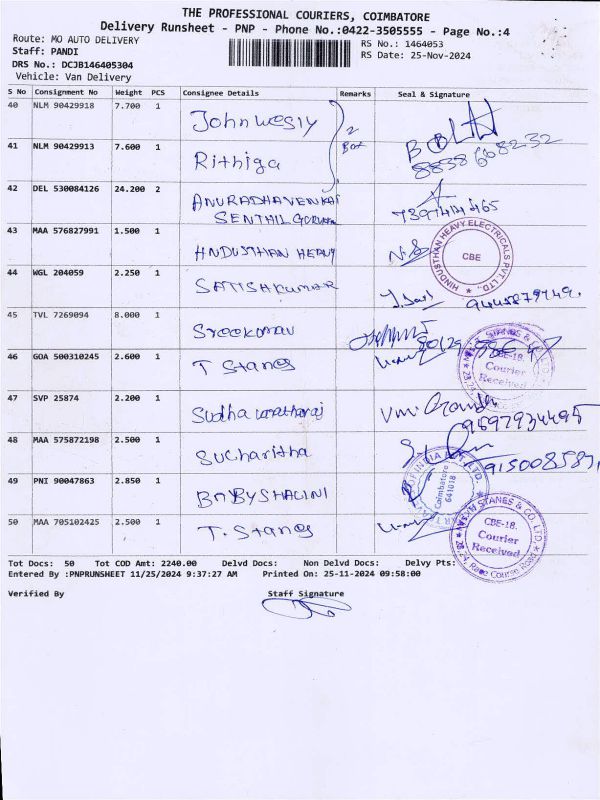 THE PROFESSIONAL COURIERS, COIMBATORE
Delivery Runsheet - PNP - Phone No.:0422-3505555 - Page No.:4
Route: MO AUTO DELIVERY
Staff: PANDI
DRS No.: DCJB146405304
Vehicle: Van Delivery
RS No.: 1464053
RS Date: 25-Nov-2024
S No Consignment No Weight PCS Consignee Details Remarks Seal & Signature
40 NLM 90429918 7.700 1 John wesly 2 Box
41 NLM 90429913 7.600 1 Rithiga 8838668232
42 DEL 530084126 24.200 2 ANURADHAVENKAT
SENTHIL
43 MAA 576827991 1.500 1 HNDUSTHAN HEAVY
HINDUSTHAN HEAVY ELECTRICALS PVT. LTD., CBE
44 WGL 204059 2.250 1 SATISHKUMAR
45 TVL 7269094 8.000 1 Sreekumar
46 GOA 500310245 2.600 1 T Stanes
CBE-18. Courier Received
47 SVP 25874 2.200 1 Sudha varatharaj
48 MAA 575872198 2.500 1 Sucharitha
49 PNI 90047863 2.850 1 BABY SHALINI
Coimbatore 641018
50 MAA 705102425 2.500 1 T. Stanes
STANES & CO. LTD. Race Course Road CBE-18. Courier Received
Tot Docs: 50 Tot COD Amt: 2240.00 Delvd Docs: Non Delvd Docs: Delvy Pts:
Entered By :PNPRUNSHEET 11/25/2024 9:37:27 AM Printed On: 25-11-2024 09:58:00
Verified By Staff Signature